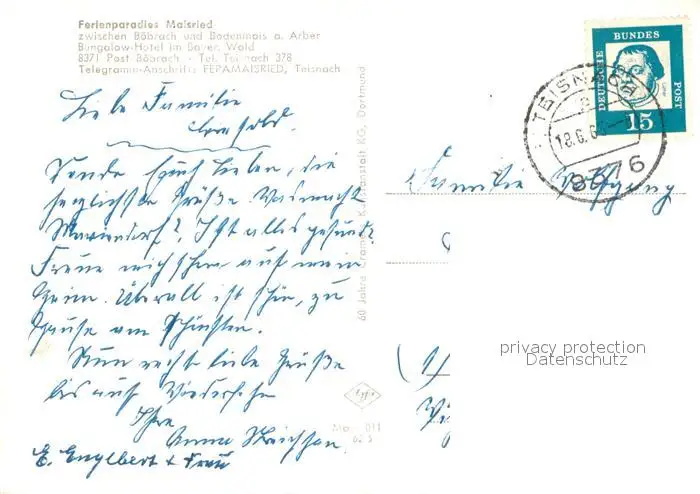 Ferienparadies Maisried
zwischen Böbrach und Bodenmais a. Arber
Bungalow-Hotel im Bayer. Wald
8371 Post Böbrach - Tel. Teisnach 378
Telegramm-Anschrift: FEPAMAISRIED, Teisnach
Liebe Familie
Sende Euch lieben, die
herzlichsten Grüße. Was macht
Mariendorf? Ist alles gesund?
Freue mich schon auf mein
Heim. Überall ist schön, zu
Hause am Schönsten.
Nun recht liebe Grüße
bis auf Wiedersehn
Ihre
Anna
E. Englbert + Frau
60 Jahre Kunstanstalt KG, Dortmund
DEUTSCHE
BUNDES
POST
15
TEISNACH
18.6.6
8376
Familie Wolfgang
privacy protection
Datenschutz